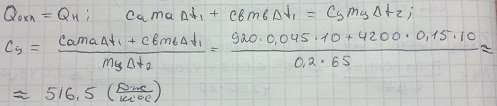 Qохл = Qн; cama Δt₁ + cвmв Δt₁ = cуmу Δt₂;
cу = (cama Δt₁ + cвmв Δt₁) / (mу Δt₂) = (920 · 0,045 · 10 + 4200 · 0,15 · 10) / (0,2 · 65) ≈
≈ 516,5 (Дж/кг°C)